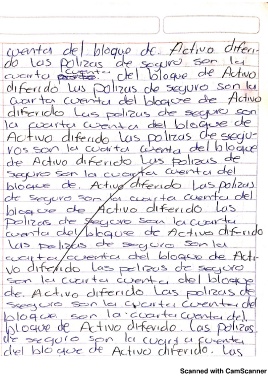 cuenta del bloque de. Activo diferi-
do las polizas de seguro son la
cuarta cuenta del bloque de Activo
diferido Las polizas de seguro son la
cuarta cuenta del bloque de Activo
diferido Las polizas de seguro son
la cuarta cuenta del bloque de
Activo diferido Las polizas de segu-
ros son la cuarta cuenta del bloque
de Activo diferido Las polizas de
seguro son la cuarta cuenta del
bloque de. Activo diferido Las polizas
de seguro son la cuarta cuenta del
bloque de Activo diferido Las
polizas de seguro son la cuarta
cuenta del bloque de Activo diferido
las polizas de seguro son la
cuarta cuenta del bloque de Acti-
vo diferido Las polizas de seguro
son la cuarta cuenta del bloque
de. Activo diferido Las polizas de
seguro son la cuarta cuenta del
bloque. son la cuarta cuenta del.
bloque de Activo diferido. Las polizas.
de seguro son la cuarta cuenta
del bloque de Activo diferido. Las
Scanned with CamScanner